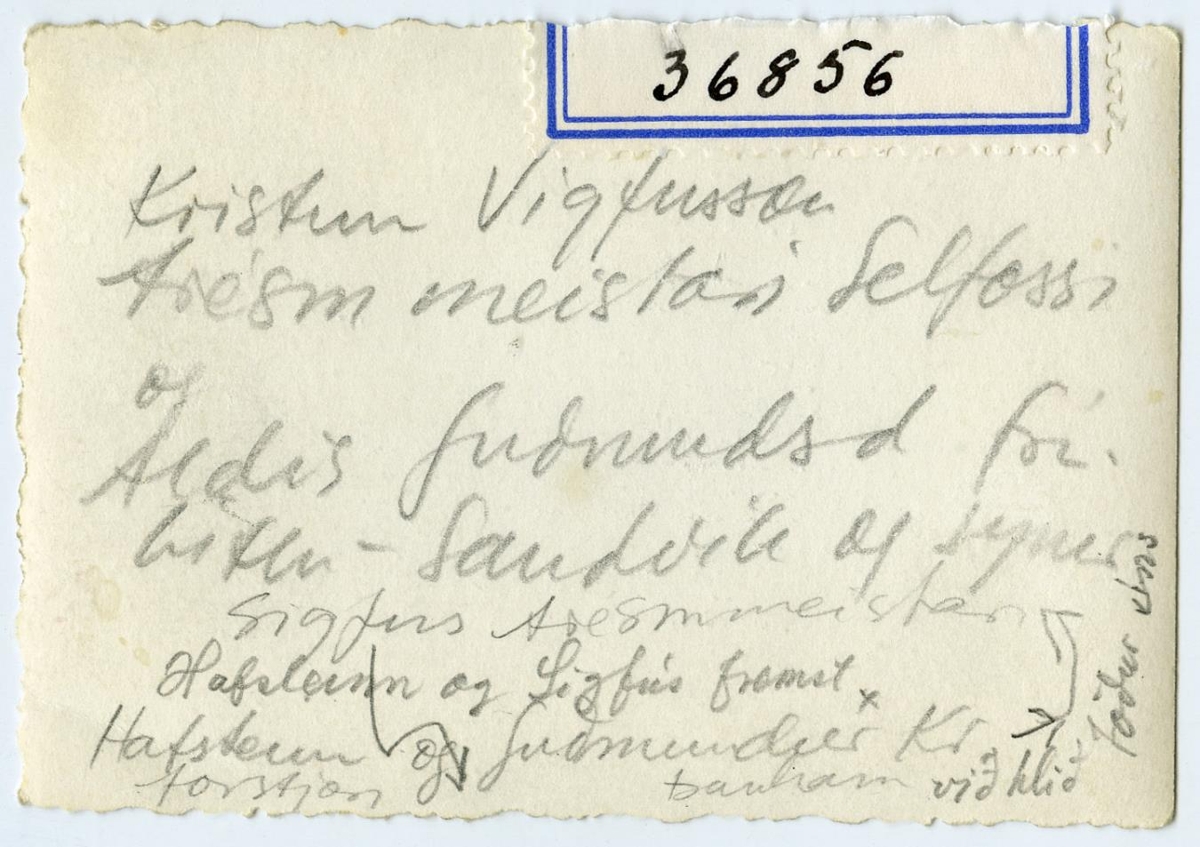 36856
Kristinn Vigfusson
trésm meistari Selfossi
og
Aldis Guðmundsd frá
litlu-Sandvik og synir
Sigfus trésmmeistari
Hafsteinn og Sigfús fremst
Hafsteinn og Guðmundur Kr
forstjori
við hlið
föður sins